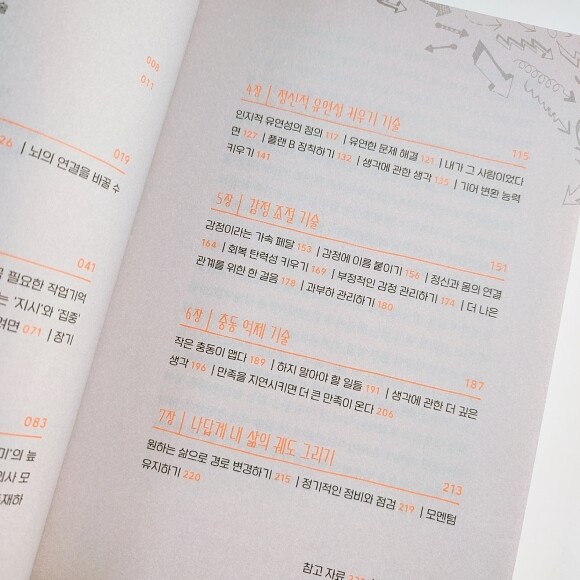 술
008
011
019
26 | 뇌의 연결을 바꿀 수
041
필요한 작업기억
는 '지시'와 '집중'
려면 071 | 장기
083
미'의 늪
의사 모
4장 | 정신적 유연성 키우기 기술 115
인지적 유연성의 정의 117 | 유연한 문제 해결 121 | 내가 그 사람이었다
면 127 | 플랜 B 장착하기 132 | 생각에 관한 생각 135 | 기어 변환 능력
키우기 141
5장 | 감정 조절 기술 151
감정이라는 가속 페달 153 | 감정에 이름 붙이기 156 | 정신과 몸의 연결
164 | 회복 탄력성 키우기 169 | 부정적인 감정 관리하기 174 | 더 나은
관계를 위한 한 걸음 178 | 과부하 관리하기 180
6장 | 충동 억제 기술 187
작은 충동이 맵다 189 | 하지 말아야 할 일들 191 | 생각에 관한 더 깊은
생각 196 | 만족을 지연시키면 더 큰 만족이 온다 206
7장 | 나답게 내 삶의 궤도 그리기 213
원하는 삶으로 경로 변경하기 215 | 정기적인 정비와 점검 219 | 모멘텀
유지하기 220
참고 자료